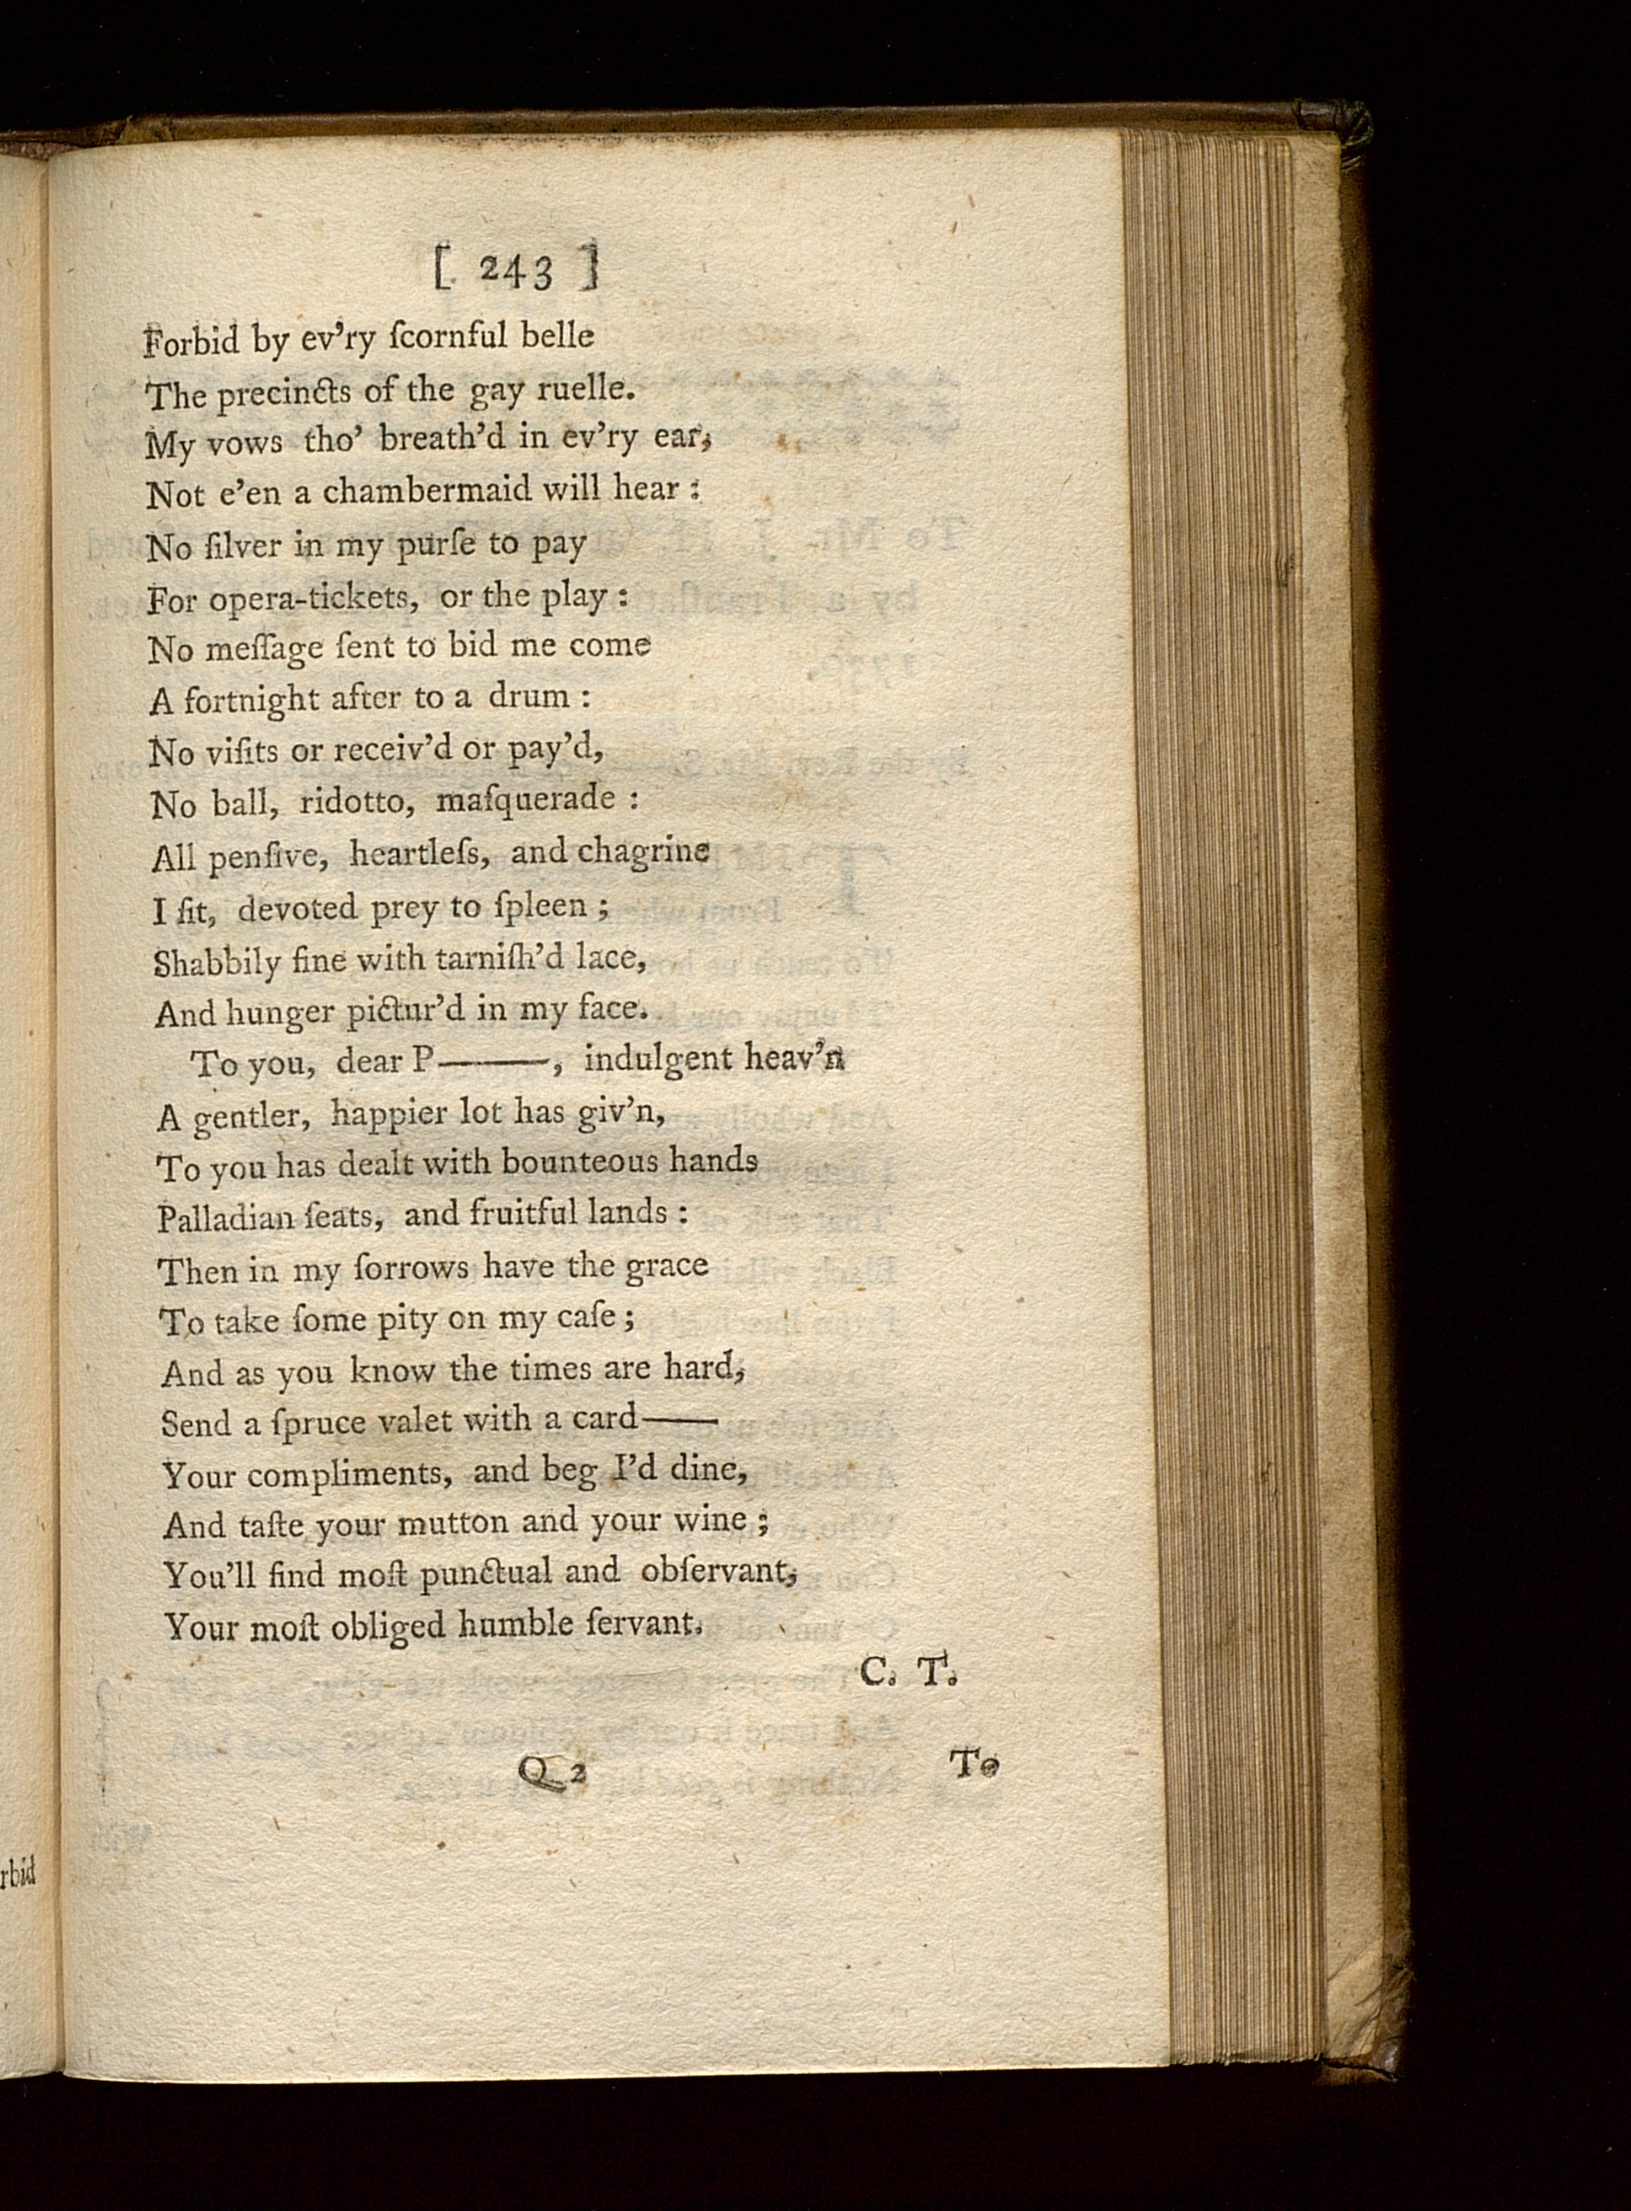 [ 243 ]
Forbid by ev'ry ſcornful belle
The precincts of the gay ruelle.
My vows tho' breath'd in ev'ry ear,
Not e'en a chambermaid will hear :
No ſilver in my purſe to pay
For opera-tickets, or the play :
No meſſage ſent to bid me come
A fortnight after to a drum :
No viſits or receiv'd or pay'd,
No ball, ridotto, maſquerade :
All penſive, heartleſs, and chagrine
I ſit, devoted prey to ſpleen ;
Shabbily fine with tarniſh'd lace,
And hunger pictur'd in my face.
To you, dear P———, indulgent heav'n
A gentler, happier lot has giv'n,
To you has dealt with bounteous hands
Palladian ſeats, and fruitful lands :
Then in my ſorrows have the grace
To take ſome pity on my caſe ;
And as you know the times are hard,
Send a ſpruce valet with a card——
Your compliments, and beg I'd dine,
And taſte your mutton and your wine ;
You'll find moſt punctual and obſervant,
Your moſt obliged humble ſervant.
C. T.
Q 2
To
rbid